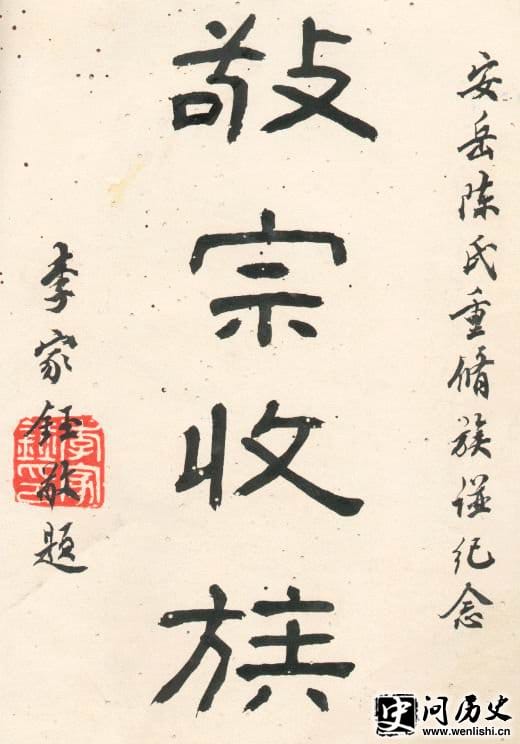 安岳陈氏重脩族谱纪念
敬宗收族
李家钰敬题
问历史
www.wenlishi.cn